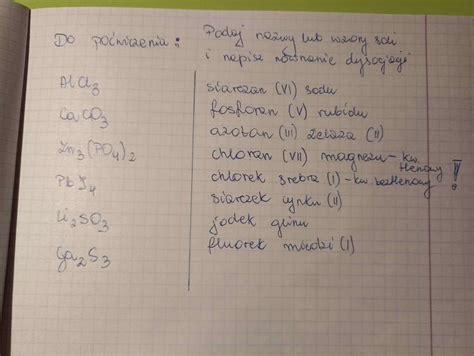 Do poćwiczenia: Podaj nazwy lub wzory soli
i napisz równanie dysocjacji
AlCl₃
CaCO₃
Zn₃(PO₄)₂
PbI₄
Li₂SO₃
Ga₂S₃
siarczan (VI) sodu
fosforan (V) rubidu
azotan (III) żelaza (II)
chloran (VII) magnezu - kw. tlenowy
chlorek srebra (I) - kw. beztlenowy !
siarczek cynku (II)
jodek glinu
fluorek miedzi (I)